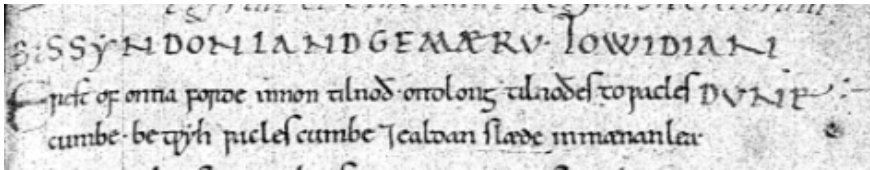 ÞISSYNDON LANDGEMÆRU · TO WIDIAN
Erest of onna forde innon tilnoð · ondlong tilnoðes to ricles DUNE
cumbe · be tƿyh ricles cumbe ⁊ ealdan slæde in mænan lea